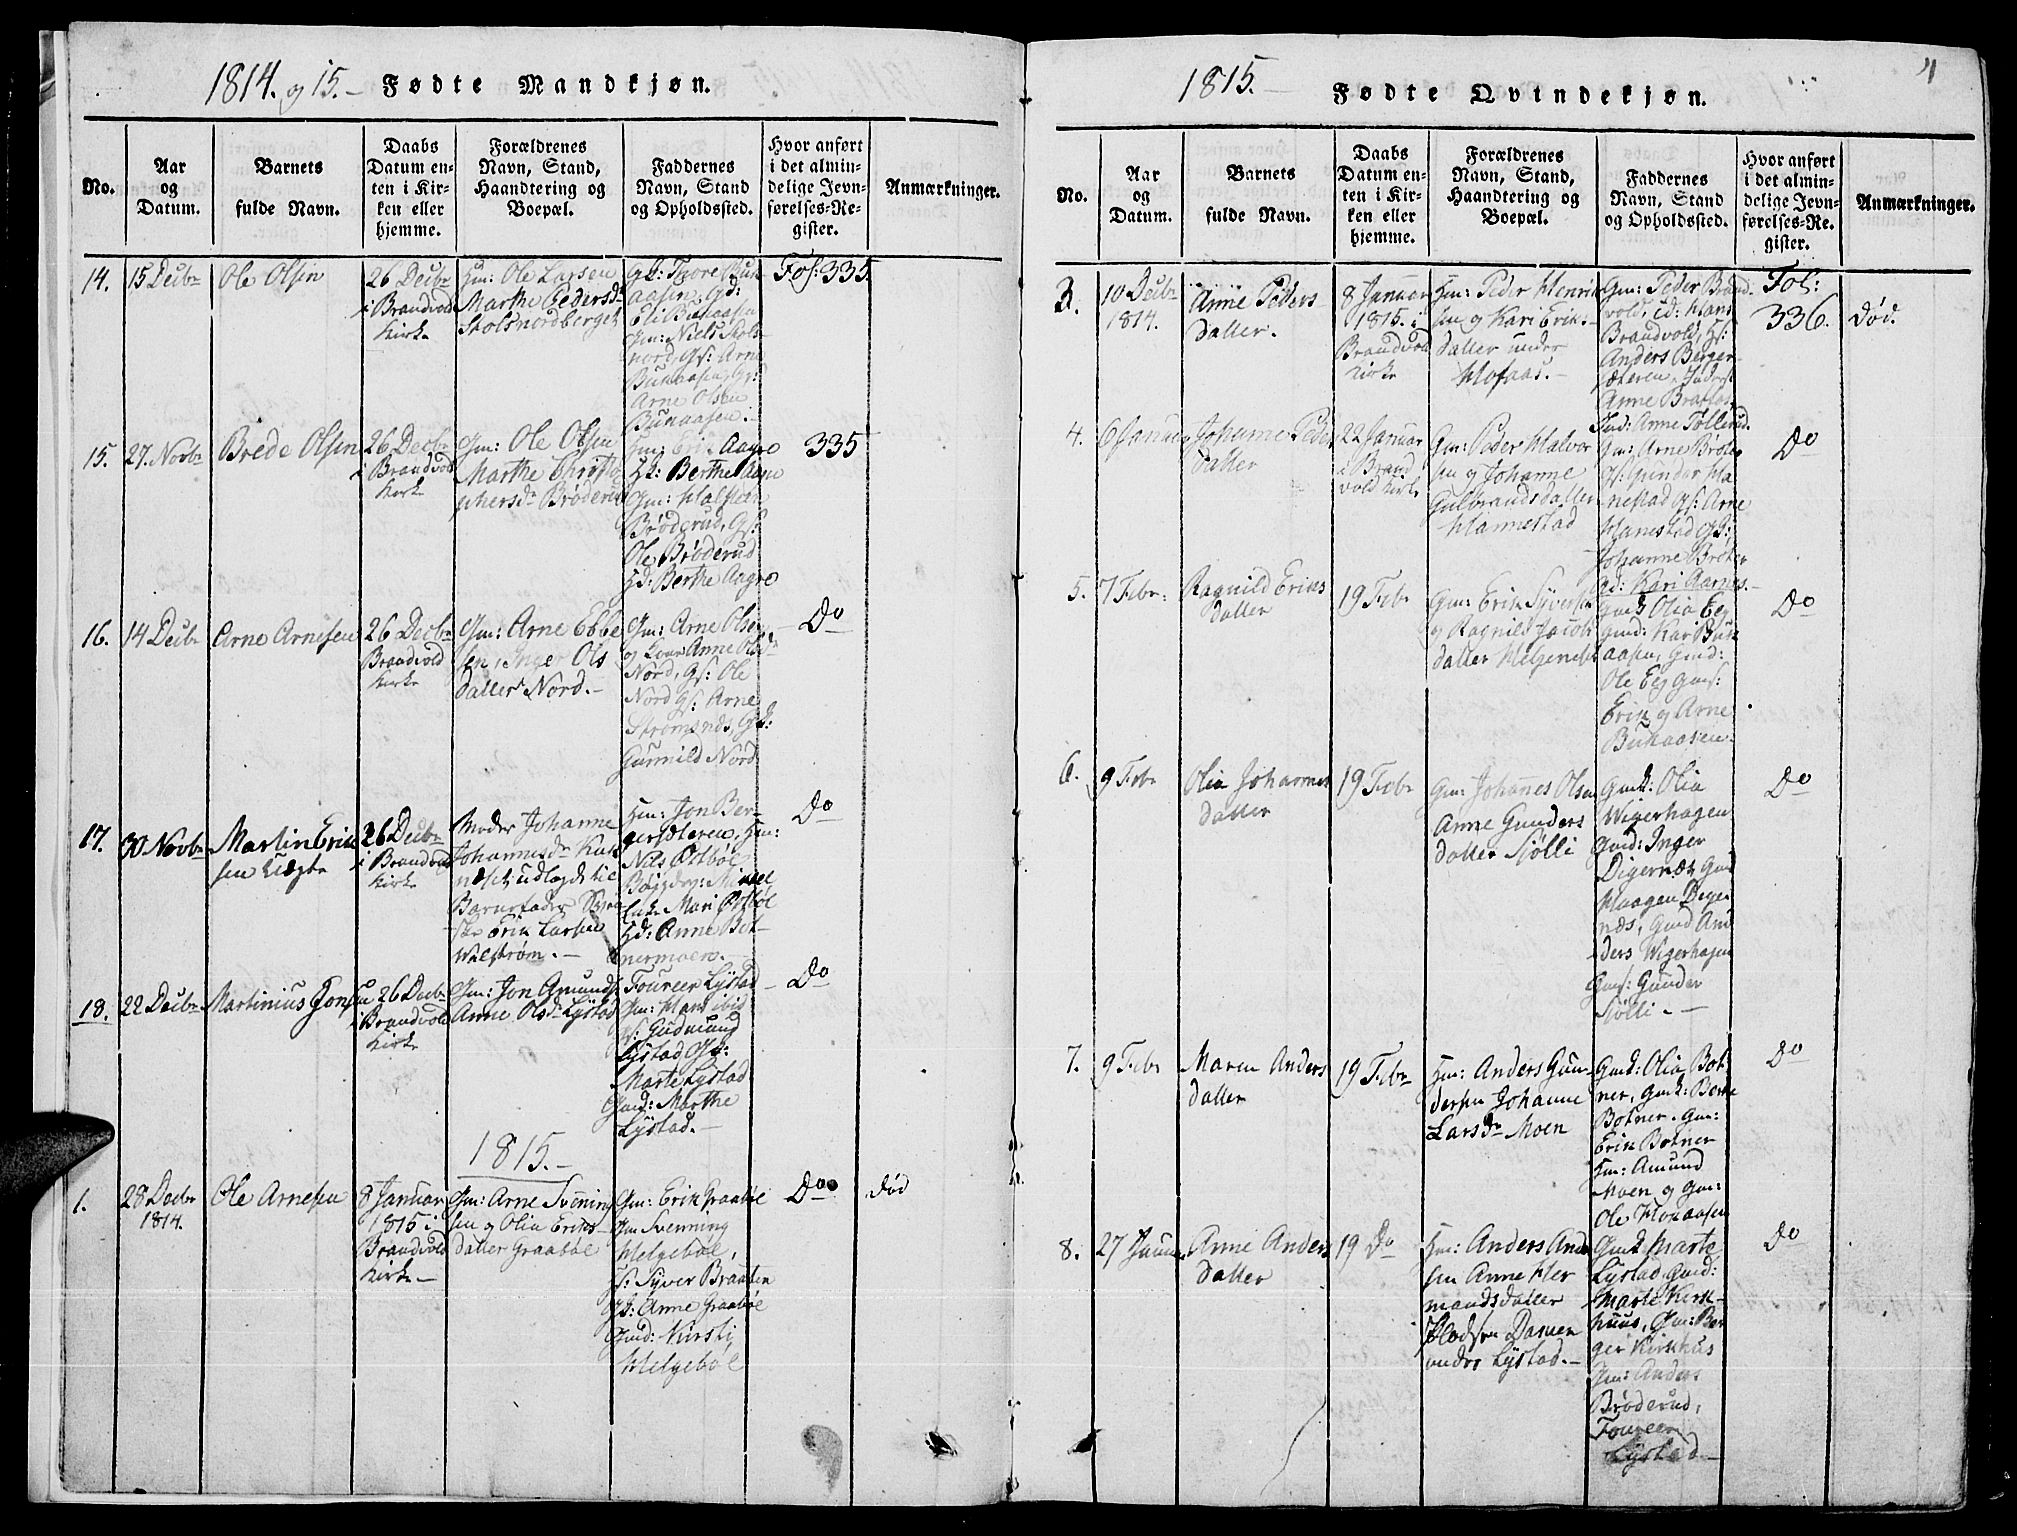 1814. og 15. – Fødte Mandkjøn.
No.
Aar
og
Datum.
Barnets
fulde Navn.
Daabs
Datum en-
ten i Kir-
ken eller
hjemme.
Forældrenes
Navn, Stand,
Haandtering og
Boepæl.
Faddernes
Navn, Stand
og Opholdssted.
Hvor anført
i det almin-
delige Jevn-
førelses-Re-
gister.
Anmærkninger.
14.
15 Decbr
Ole Olsen
26 Decbr
i Brandvold
Kirke
Hm: Ole Larsen
Marthe Pedersdr
Stolsnordberget
Gk: Thore Buk
aasen, Gd:
Eli Bukaasen
Gm: Niels Stols-
nord, Gs: Arne
Bukaasen, Gs:
Arne Olsen
Bukaasen.
Fol: 335
15.
27. Novbr
Brede Olsen
26 Decbr
i Brandvold
Kirke
Gm: Ole Olsen
Marthe Christo
phersdr Brøderud
Hm: Erik Aagre
Hd: Berthe Aagre
Gm: Halsteen
Brøderud, Gs:
Ole Brøderud
Hd: Berthe Aagre
335
16.
14 Decbr
Arne Arnesen
26 Decbr
Brandvold
Kirke
Gm: Arne Ebbe
sen, Inger Ols
datter Nord. –
Gm: Arne Olsen
og Kone Anne Olsdr
Nord, Gs: Ole
Nord Gs: Arne
Strømsnds, Gk:
Gunnild Nord
Do
17.
30 Novbr
Martin Erik
sen Uægte
26 Decbr
i Brandvold
Kirke
Moder Johanne
Johannesdr Kals
næset udlagde til
Barnefader
Erik Larsen
Walstrøm. –
Hm: Jon Ber-
gersæteren, Hm:
Nils Østbøl
Enke Mari Østbøl
Hd: Anne Bot-
nermoen. –
Do
18.
22 Decbr
Martinius Jon
sen
26 Decbr
i Brandvold
Kirke
Gm: Jon Gmunds.
Anne Olsdr Lystad
Foureer Lystad
Gm: Hans ibid
Gs: Gudmund
Lystad Gk:
Marte Lystad
Gmd: Marthe
Lystad. –
Do
1815. –
1.
28 Decbr
1814.
Ole Arnesen
8 Januar
1815 i
Brandvold
Kirke –
Gm: Arne Svening
sen og Olia Eriks-
datter Graabøl
Gm: Erik Graabøl
Gm Svenning
Melgebøl,
Gs: Syver Braaten
Gk: Anne Graabøl
Gmd: Kirsti
Melgebøl
Do
død
1815. – Fødte Qvindekjøn.
4
No.
Aar
og
Datum.
Barnets
fulde Navn.
Daabs
Datum en-
ten i Kir-
ken eller
hjemme.
Forældrenes
Navn, Stand,
Haandtering og
Boepæl.
Faddernes
Navn, Stand
og Opholdssted.
Hvor anført
i det almin-
delige Jevn-
førelses-Re-
gister.
Anmærkninger.
3.
10 Decbr
1814.
Anne Peders
datter.
8 Januar
1815. i
Brandvold
Kirke
Hm: Peder Henrik
sen og Kari Eriks-
datter under
Hofaas. –
Gm: Peder Brand-
vold, id: Hans
Brandvold, Gs:
Anders Berger-
sæteren,
Anne Braaten
Ind: Anne Tollerud.
Fol:
336.
død.
4.
6 Januar
Johanne Peders
datter
22 Januar
i Brand
vold Kirke
Gm: Peder Halvor
sen og Johanne
Gulbrandsdatter
Hannestad
Gm: Arne Brøten
Gs: Gundar Ha-
nestad Gs: Arne
Hanestad Gk:
Johanne Brøten
Gd: Kari Aarnes. –
Do
5.
7 Febr.
Ragnild Eriks
datter
19 Febr
Gm: Erik Syversen
og Ragnild Jacob
datter Helgenest
Gmk Olia Eeg
Gmd: Kari Buk
aasen, Gmd:
Ole Eeg Gms:
Erik og Arne
Bukaasen
Do
6.
9 Febr
Olia Johannes
datter
19 Febr
Gm: Johanes Olsen
Anne Gunders
datter Sjølli
Gmk: Olia
Wigerhagen
Gmd: Inger
Digernæs Gmd
Haagen Diger
næs, Gmd An
ders Wigerhagen
Gms: Gunder
Sjølli. –
Do
7.
9 Febr
Maren Anders
datter
19 Febr
Hm: Anders Gun-
dersen Johanne
Larsdr Moen
Gmk: Olia Bot-
ner, Gmk: Berte
Botner. Gm:
Erik Botner
Hm: Amund
Moen og Gm:
Ole Hokaasen
Do
8.
27 Januar
Anne Anders
datter
19 Do
Hm: Anders Ander
sen Anne Her
mandsdatter
under Lystad. –
Gmk Marte
Lystad, Gmd:
Marte Kirk-
huus, Gm: Ber
ger Kirkhus
Gm: Anders
Brøderud,
Foureer
Lystad –
Do